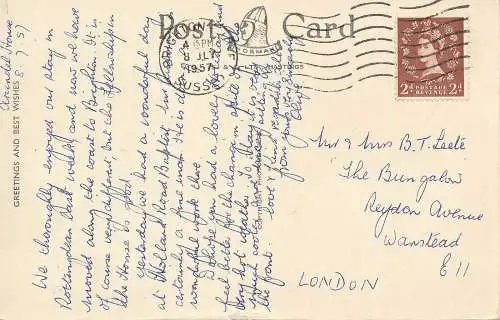 Post Card
BRIGHTON
4 15 PM
8 JLY
1957
SUSSEX
NORMAN
POSTAGE REVENUE
2d 2d
GREETINGS AND BEST WISHES
8.7.57
We thoroughly enjoyed our stay in
Rottingdean last week, and now we have
moved along the coast to Brighton. It is
of course very different, but the fellowship in
the House is good.
Yesterday we had a wonderful day
at Holland Road Baptist,
certainly a fine man. It is a
wonderful work there.
Do hope you had a lovely and
feel better for the change in spite of
very hot weather is
cooler down
the front.
love & kind regards
from
Mr & Mrs B.T. Leete
The Bungalow
Reydon Avenue
Wanstead
E11
LONDON